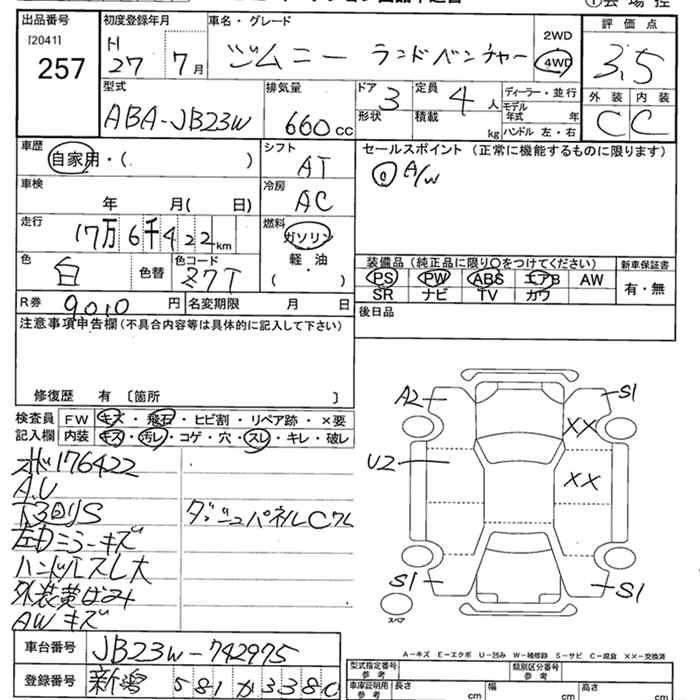 出品番号
[2041]
257
初度登録年月
H 27 7月
車名・グレード
ジムニー ランドベンチャー
2WD
4WD
評価点
3.5
外装 内装
C C
型式
ABA-JB23W
排気量
660cc
ドア 3
形状
定員 4人
積載 kg
ディーラー・並行
モデル
年式 年
ハンドル 左・右
車歴
自家用・( )
シフト
AT
セールスポイント (正常に機能するものに限ります)
A/W
車検
年 月( 日)
冷房
AC
走行
17万6千422km
燃料
ガソリン
軽・油
( )
色
白
色替
色コード
Z7T
装備品 (純正品に限り○をつけてください)
PS PW ABS エアB AW
SR ナビ TV カワ
新車保証書
有・無
R券 9010円
名変期限 月 日
後日品
注意事項申告欄(不具合内容等は具体的に記入して下さい)
修復歴 有 〔箇所 〕
検査員
記入欄
FW キズ・飛石・ヒビ割・リペア跡・×要
内装 キズ・汚レ・コゲ・穴・スレ・キレ・破レ
176422
A.U
下回りS
ダッシュパネルCワレ
左Dミラーキズ
ハンドルスレ大
外装黄ばみ
AWキズ
A2
S1
XX
U2
XX
S1
S1
スペア
A-キズ E-エクボ U-凹み W-補修跡 S-サビ C-腐食 XX-交換済
車台番号
JB23W-742975
登録番号
新潟 581 か 3380
型式指定番号
参考
類別区分番号
参考
車庫証明用
参考
長さ cm
幅 cm
高さ cm